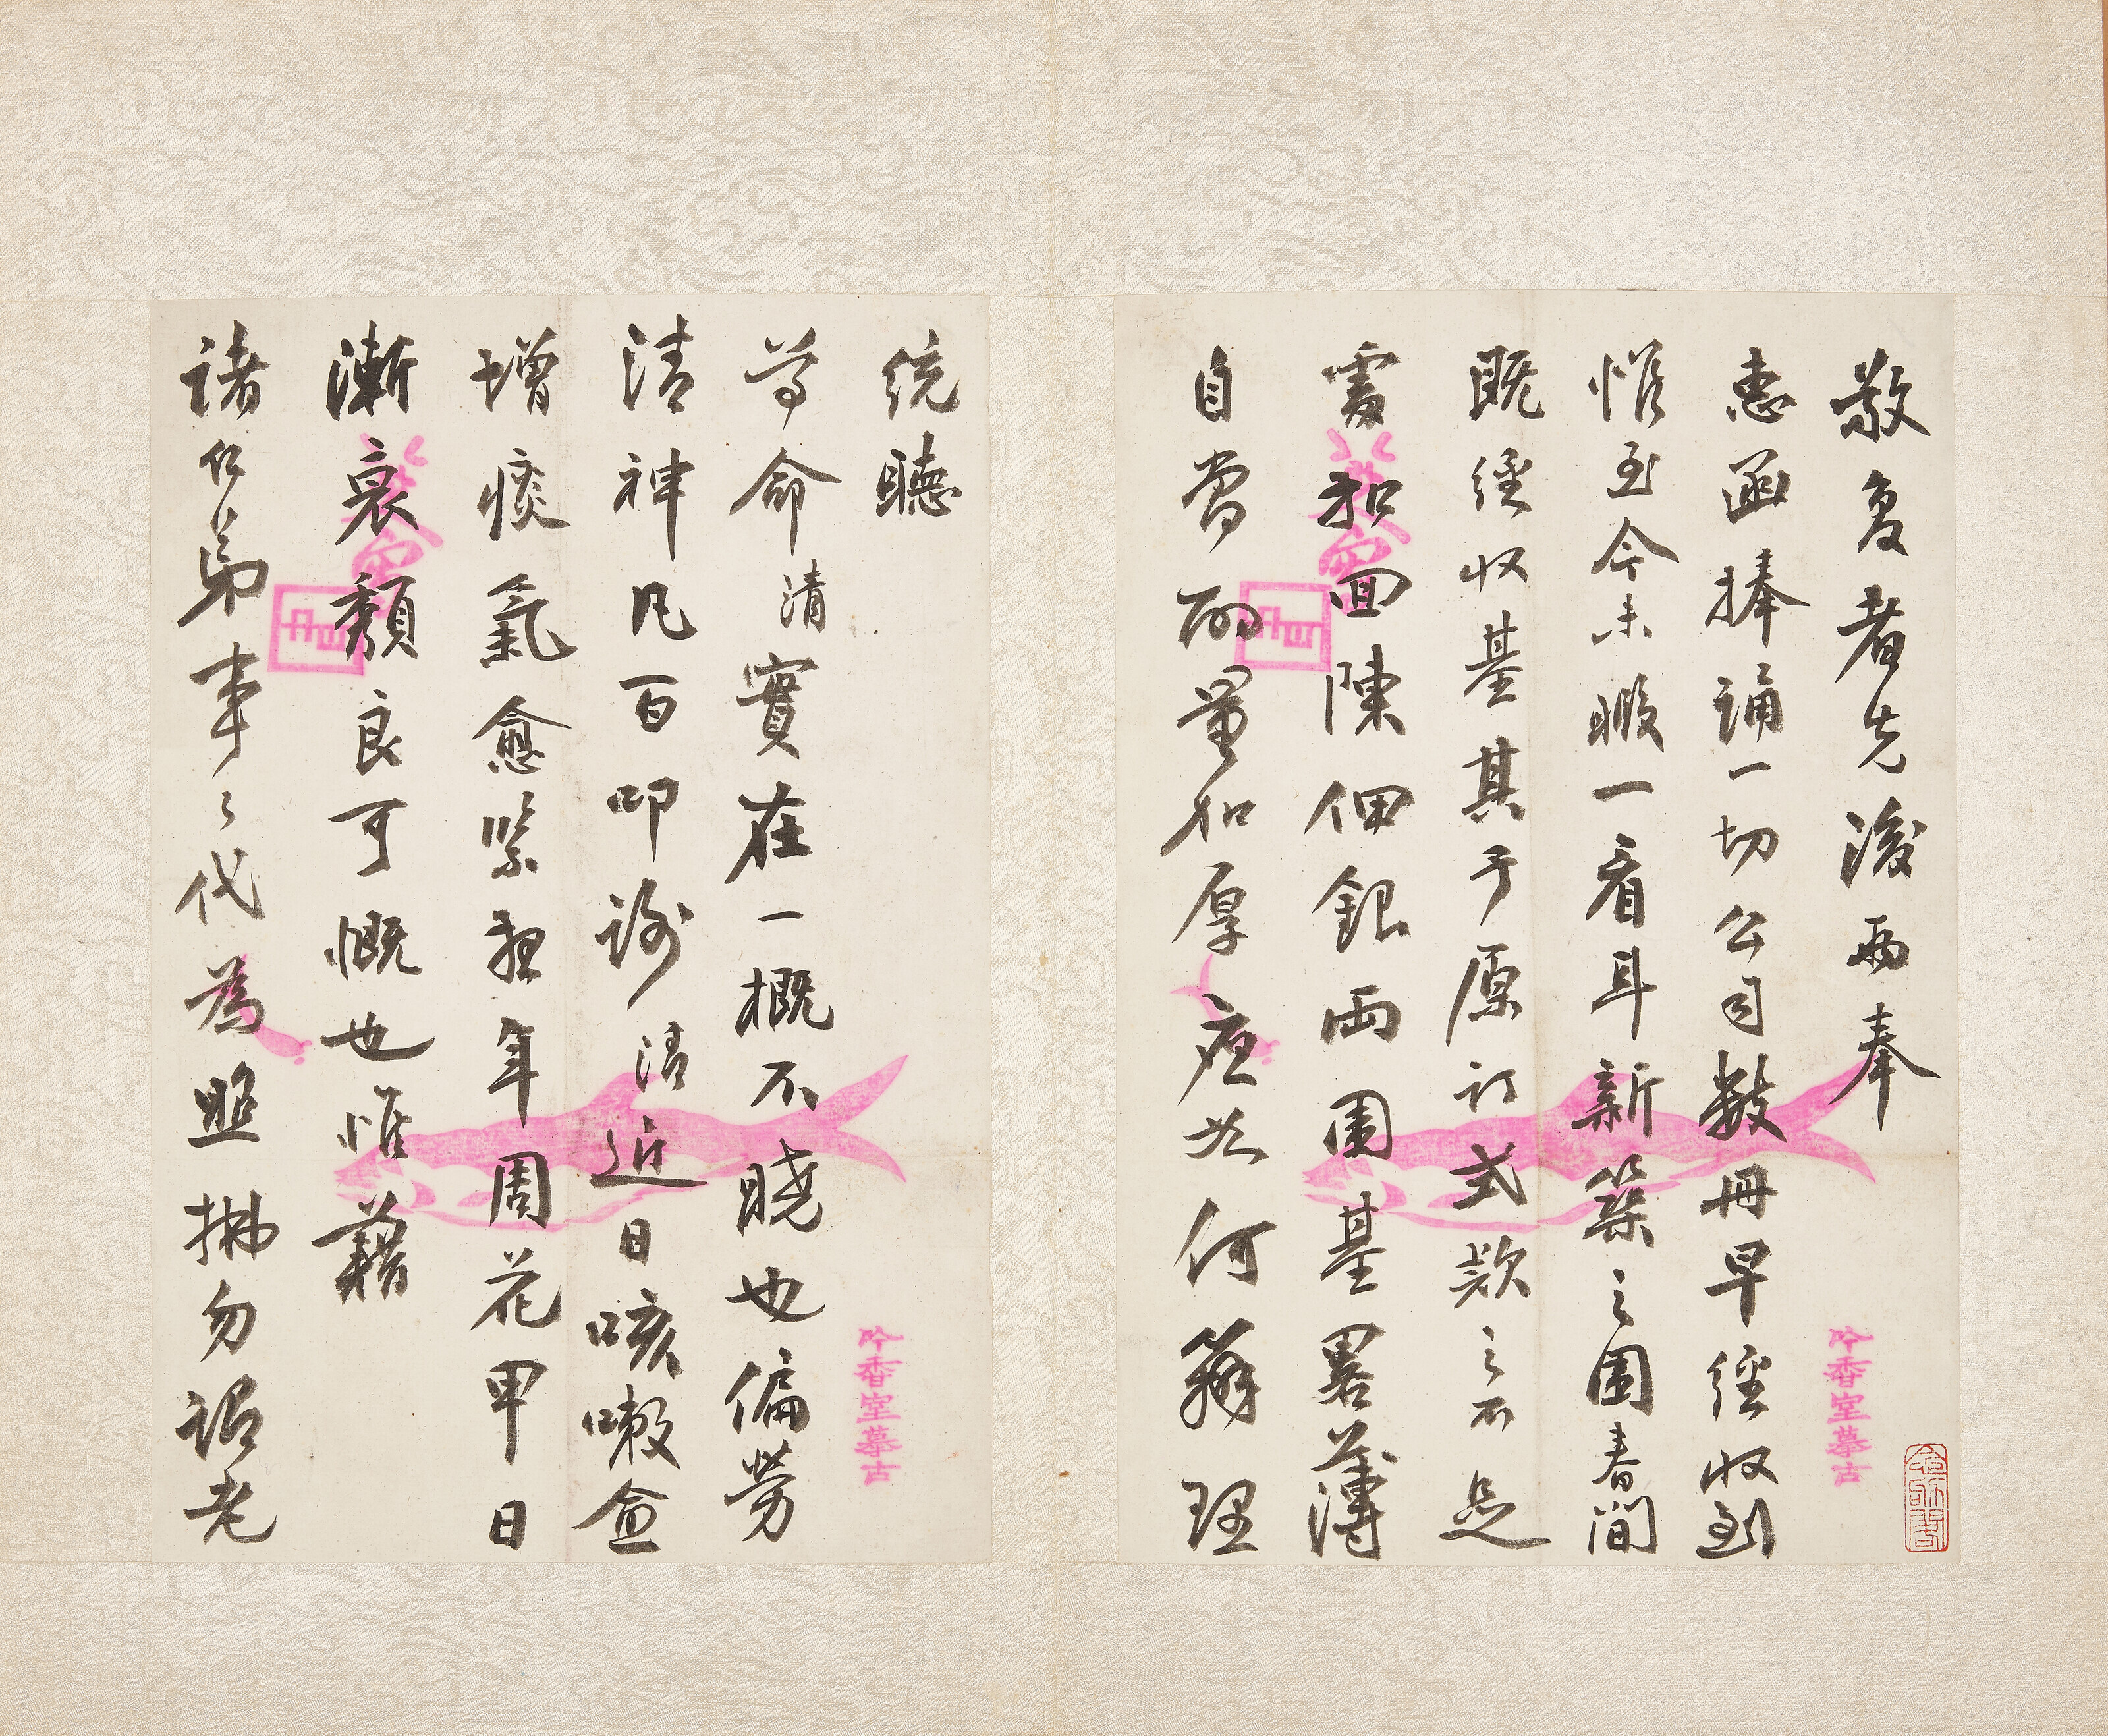 敬复者先後兩奉
惠函捧誦一切公司數冊早經收到
惟至今未暇一看耳新築之圍春間
既經收基其于原訂式款之不足
處扣回陳佃銀兩圍基畧薄
自當酌量扣厚應如何辦理
統聽
尊命清實在一概不曉也偏勞
清神凡百叩謝清近日咳嗽益
增痰氣愈緊班年周花甲日
漸衰頹良可慨也惟藉
諸仁弟事々代為照拂勿詔老
吟香室摹古
吟香室摹古